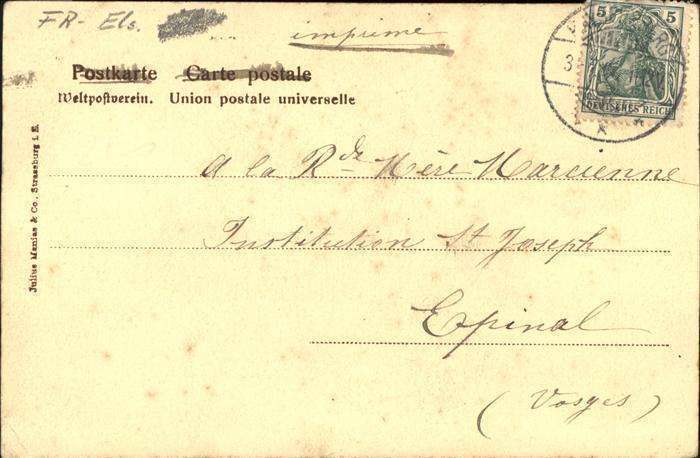 FR- Els.
imprimé
5 5
DEUTSCHES REICH
Postkarte Carte postale
Weltpostverein. Union postale universelle
A la Rde Mère Marcienne
Institution St Joseph
Epinal
(Vosges)
Julius Manias & Co., Strassburg i. E.